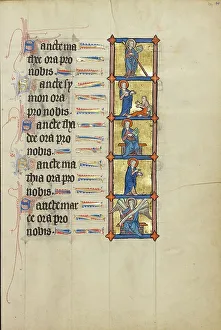 Sancte ma
thee ora pro
nobis.
Sancte sy
mon ora pro
nobis.
Sancte tha
dee ora pro
nobis.
Sancte ma
thia ora pro
nobis.
Sancte mar
ce ora pro
nobis.